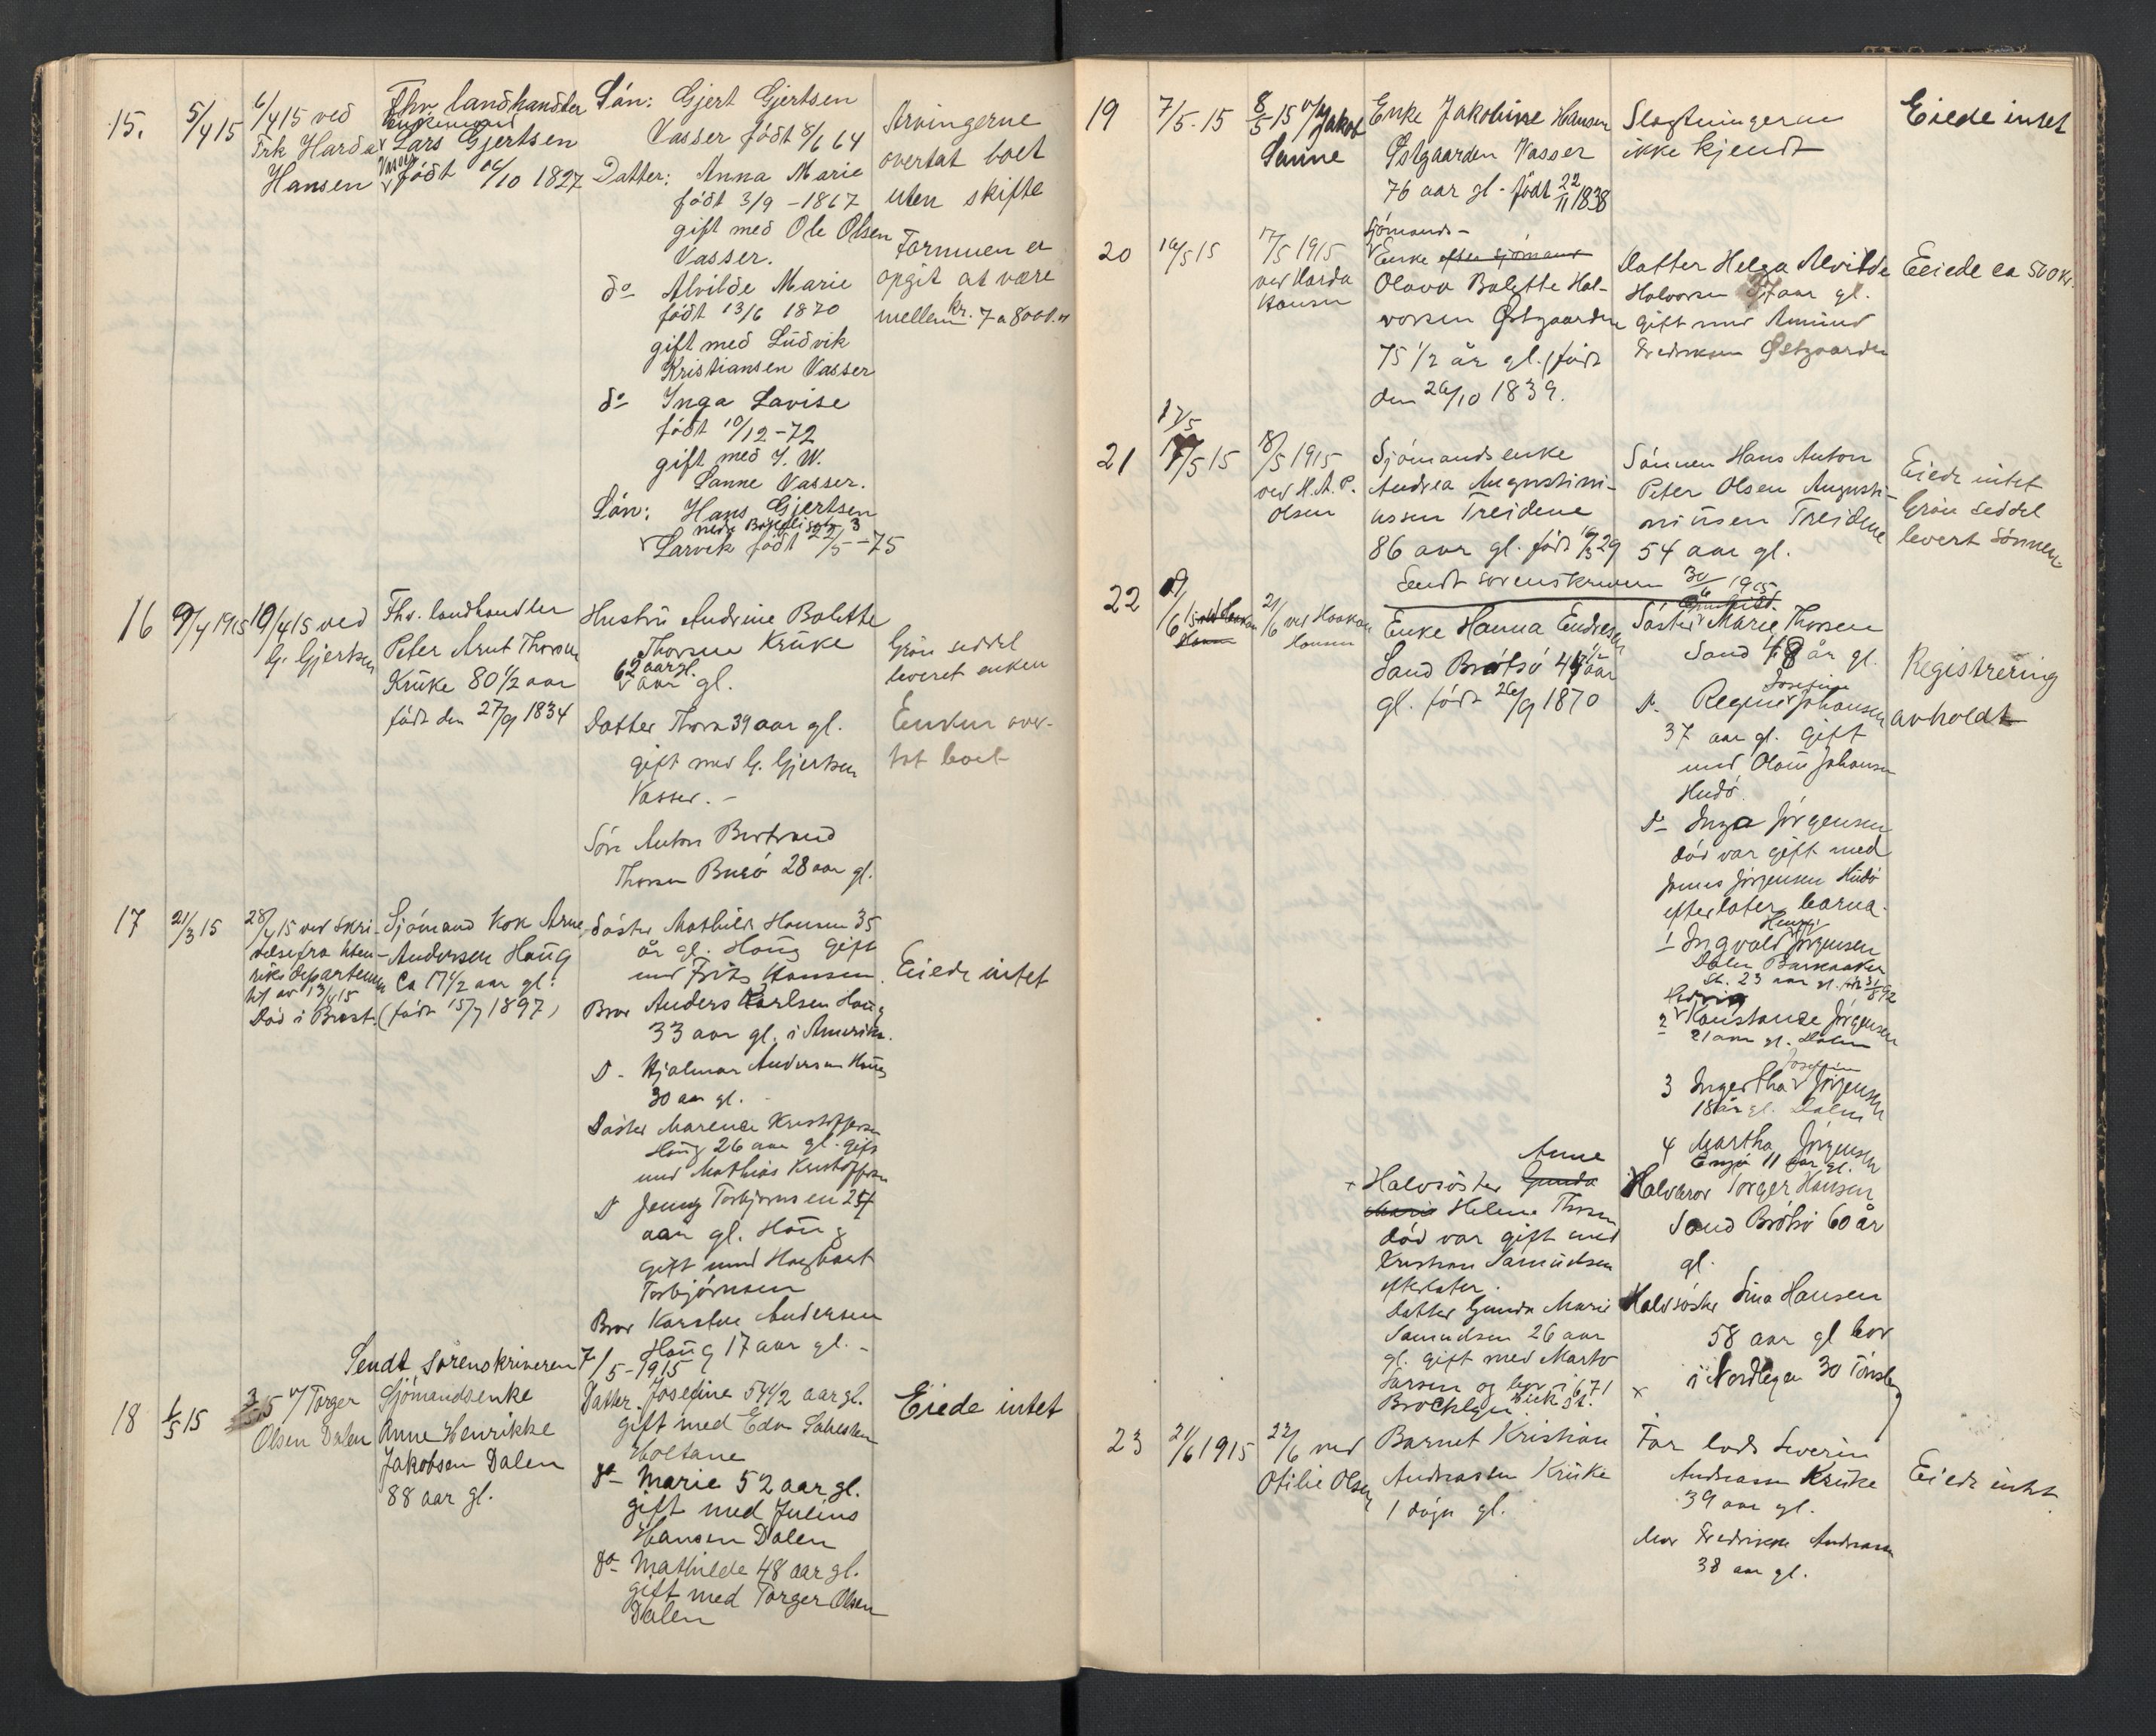 15.
5/4 15
6/4 15 ved
Frk Harda
Hansen
Fhv. landhandler
Enkemand
Lars Gjertsen
Vasser
født 16/10 1827
Sön: Gjert Gjertsen
Vasser födt 8/6 64
Datter: Anna Marie
födt 3/9 - 1867
gift med Ole Olsen
Vasser.
do Alvilde Marie
födt 13/6 1870
gift med Ludvik
Kristiansen Vasser
do Inga Lovise
födt 10/12 - 72
gift med J. W.
Sanne Vasser.
Sön: Hans Gjertsen
3
Larvik födt 22/5 - 75
Arvingerne
overtat boet
uten skifte
Formuen er
opgit at være
mellem kr. 7 a 8000.
16
9/4 1915
10/4 15 ved
G. Gjertsen
Fhv. landhandler
Peter Arnt Thorsen
Krüke 80 1/2 aar
födt den 27/9 1834
Hustrü Andrine Bolette
Thorsen Krüke
62 aar gl.
aar gl.
Datter Thora 39 aar gl.
gift med G. Gjertsen
Vasser. -
Sön Anton Bertrand
Thorsen Buerö 28 aar gl.
Grön seddel
leveret enken
Enken over-
tat boet
17
21/3 15
28/4 15 ved skri-
velse fra Uten-
riksdepartemen
tet av 13/4 15
Död i Brest.
Sjömand kok Arne
Andersen Haüg
Ca 17 1/2 aar gl.
(födt 15/7 1897)
Söster Mathilde Hansen 35
år gl. Haüg gift
med Fritz Hansen.
Bror Anders Karlsen Haug
33 aar gl. i Amerika.
D- Hjalmar Andersen Haug
30 aar gl. -
Söster Marence Kristoffersen
Haüg 26 aar gl. gift
med Mathias Kristoffersen
D Jenny Torbjörnsen 24
aar gl. Haüg
gift med Hagbart
Torbjörnsen
Bror Karsten Andersen
Haüg 17 aar gl. -
Eiede intet
Sendt Sörenskriveren 7/5 - 1915
18
1/5 15
3/5 v/ Torger
Olsen Dalen
Sjömandsenke
Anne Henrikke
Jakobsen Dalen
88 aar gl.
Datter Josefine 54 1/2 aar gl.
gift med Edv
Holtane
do Marie 52 aar gl.
gift med Julius
Hansen Dalen
do Mathilde 48 aar gl.
gift med Torger Olsen
Dalen
Eiede intet
19
7/5. 15
8/5 15 v/ Jakob
Sanne
Enke Jakobine Hansen
Östgaarden Vasser
76 aar gl. födt 22/11 1838
Slegtningerne
ikke kjendt
Eiede intet
20
16/5 15
17/5 1915
ved Harda
Hansen
Sjömands-
Enke efter sjömand
Olava Bolette Hal-
vorsen Østgaarden
75 1/2 år gl. (födt
den 26/10 1839.
Datter Helga Alvilde
Halvorsen aar gl.
gift med Amund
Fredriksen Østgaarden
Eiede ca 500 kr.
21
17/5
17/5 15
18/5 1915
ved H. A. P.
Olsen
Sjömandsenke
Andrea Augustini-
ussen Treidene
86 aar gl. födt 29
Sönnen Hans Anton
Peter Olsen Augusti-
niüsen Treidene
54 aar gl.
Eiede intet
Grön seddel
levert Sönnen
Sendt sorenskriveren 30/6 1915
22
/6 15 ved Haakon
Hansen
21/6 ved Haakon
Hansen
Enke Hanna Endresen
Sand Brötsö 44 1/2 aar
gl. födt 26/9 1870
Söster Marie Thorsen
Sand 48 år gl.
D- Regine Josefine Johansen
37 aar gl. gift
med Olaüs Johansen
Hudö.
D- Inga Jörgensen
död var gift med
James Jörgensen Hudö
efterlater barna.
1 Ingvald Henry Jörgensen
Dalen Barkaaker
St. 23 aar gl.
Hedvig
2 Konstanse Jörgensen
21 aar gl. Dalen
Josefine
3 Ingertha Jörgensen
18 år gl. Dalen
4 Martha Jörgensen
Engö 11 aar gl.
Halvbror Torger Hansen
Sand Brötsö 60 år
gl.
Halvsöster Lina Hansen
58 aar gl bor
x i Nordbyen 30 Tönsberg
Registrering
avholdt
Anne
x Halvsöster Gunda
Marie Helene Thorsen
död var gift med
Kristian Samuelsen
efterlater.
Datter Gunda Marie
Samuelsen 26 aar
gl. gift med Martin
Larsen og bor i 671
Brocklyn. Hick St.
23
21/6 1915
22/6 ved
Otilie Olsen
Barnet Kristian
Andreassen Krüke
1 dögn gl.
Far lods Severin
Andreassen Krüke
39 aar gl.
Mor Fredrikke Andreassen
38 aar gl.
Eiede intet